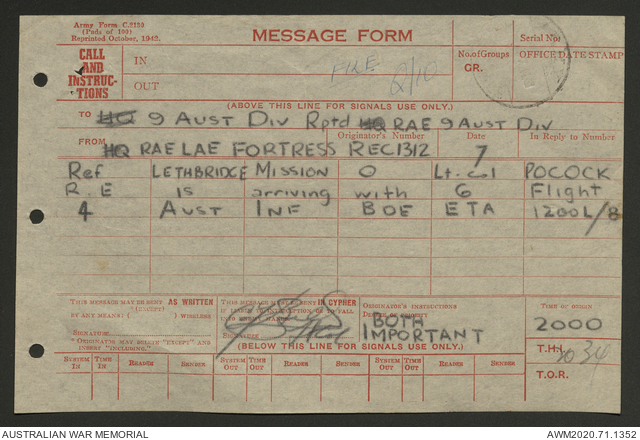 Army Form C.2139
(Pads of 100)
Reprinted October, 1942.
MESSAGE FORM
Serial No:
CALL AND INSTRUC-TIONS
IN
OUT
FILE 2/10
No. of Groups
GR.
OFFICE DATE STAMP
(ABOVE THIS LINE FOR SIGNALS USE ONLY.)
TO HQ 9 AUST DIV Rptd HQ RAE 9 AUST DIV
Originator's Number Date In Reply to Number
FROM HQ RAE LAE FORTRESS REC1312 7
Ref LETHBRIDGE MISSION O Lt. Col POCOCK
R.E is arriving with G Flight
4 AUST INF BDE ETA 1200L/8
THIS MESSAGE MAY BE SENT AS WRITTEN (EXCEPT)
BY ANY MEANS. ( ) WIRELESS
SIGNATURE
* ORIGINATOR MAY DELETE "EXCEPT" AND INSERT "INCLUDING."
THIS MESSAGE MUST BE SENT IN CYPHER
SIGNATURE
ORIGINATOR'S INSTRUCTIONS
DEGREE OF PRIORITY
BOTH
IMPORTANT
TIME OF ORIGIN
2000
(BELOW THIS LINE FOR SIGNALS USE ONLY.)
T.H.I. 2034
T.O.R.
SYSTEM IN TIME IN READER SENDER SYSTEM OUT TIME OUT READER SENDER SYSTEM OUT TIME OUT READER SENDER
AUSTRALIAN WAR MEMORIAL
AWM2020.71.1352